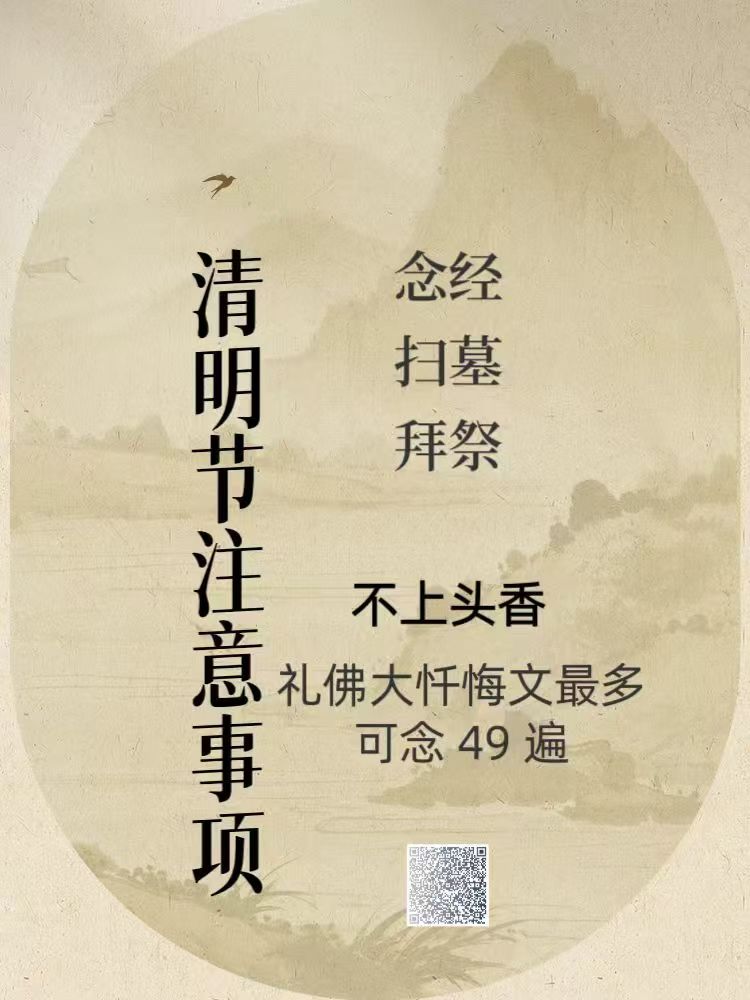 清明节注意事项
念经
扫墓
拜祭
不上头香
礼佛大忏悔文最多
可念 49 遍